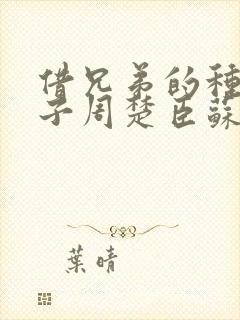 借兄弟的種
子周楚臣蘇
葉晴